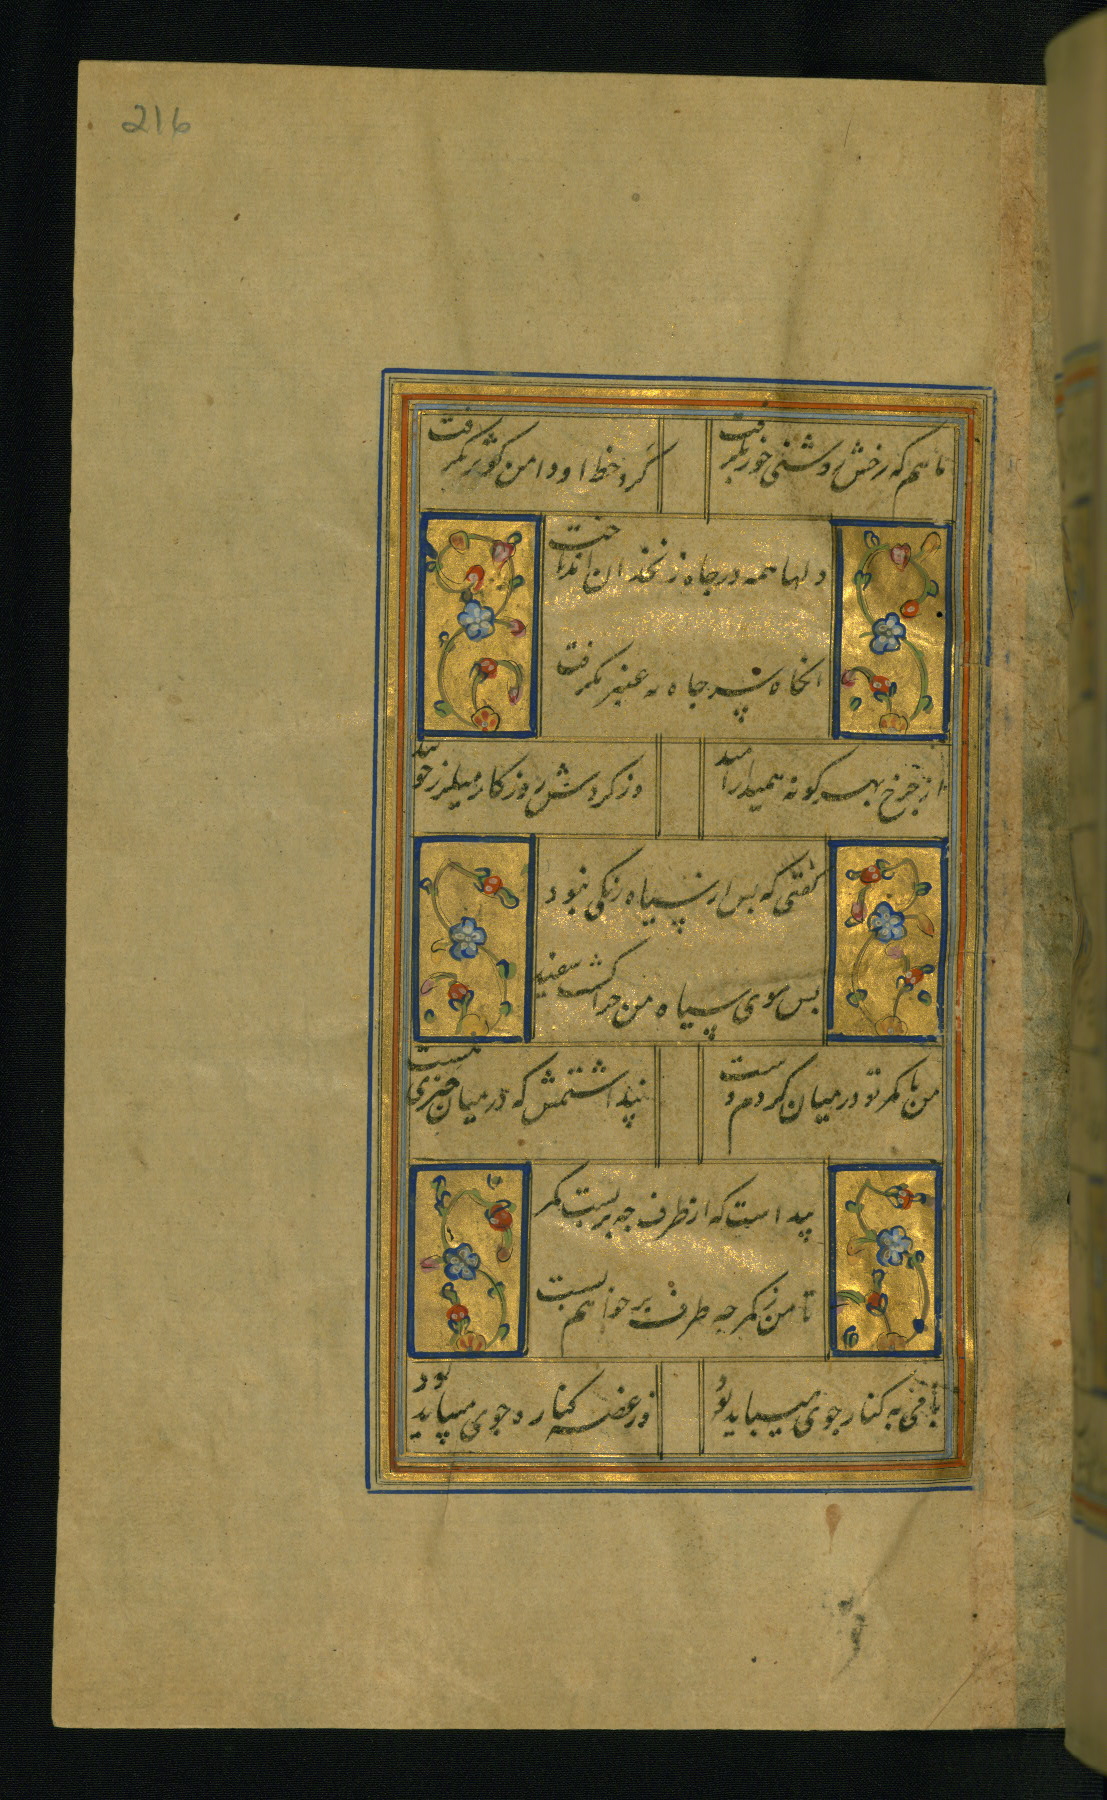 216
ماهم که رخش روشنی خور بگرفت
گرد خط او دامن کوثر بگرفت
دلها همه در چاه زنخدان انداخت
انکاه سر چاه به عنبر بگرفت
از چرخ بهر کونه همیدار امید
وز کردش روزکار میلرز جو بید
کفتی که بس از سیاه رنکی نبود
بس موی سیاه من جرا کشت سفید
من با کمر تو در میان کردم دست
پنداشتمش که در میان جیزی هست
پیداست که از طرف جه بربست کمر
تا من ز کمر جه طرف بر خواهم بست
با می به کنار جوی میباید بود
وز غصه کناره جوی میباید بود